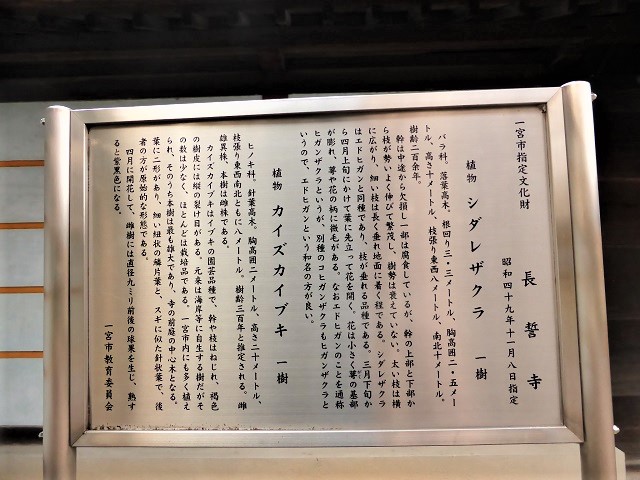 一宮市指定文化財
長誓寺
昭和四十九年十一月八日指定
植物 シダレザクラ 一樹
バラ科。落葉高木。根回り三・三メートル、胸高囲二・五メー
トル、高さ十メートル、枝張り東西八メートル、南北十メートル。
樹齢二百余年。
幹は中途から欠損し一部は腐食しているが、幹の上部と下部か
ら枝が勢いよく伸びて繁茂し、樹勢は衰えていない。太い枝は横
に広がり、細い枝は長く垂れ地面に着く程である。シダレザクラ
はエドヒガンと同種であり、枝が垂れる品種である。三月下旬か
ら四月上旬にかけて葉に先立って花を開く。花は小さく萼の基部
が膨れ、萼や花の柄に微毛がある。なおエドヒガンのことを通称
ヒガンザクラというが、別種のコヒガンザクラもヒガンザクラと
いうので、エドヒガンという和名の方が良い。
植物 カイズカイブキ 一樹
ヒノキ科。針葉高木。胸高囲二メートル、高さ二十メートル、
枝張り東西南北ともに八メートル。樹齢三百年と推定される。雌
雄異株。本樹は雌株である。
カイズカイブキはイブキの園芸品種で、幹や枝はねじれ、褐色
の樹皮には縦の裂け目がある。元来は海岸等に自生する樹だがそ
の数は少なく、ほとんどは栽培品である。一宮市内にも多く植え
られ、そのうち本樹は最も雄大であり、寺の前庭の中心木となる。
葉に二形があり、細い紐状の鱗片葉と、スギに似た針状葉で、後
者の方が原始的な形態である。
四月に開花して、雌樹には直径九ミリ前後の球果を生じ、熟す
ると紫黒色になる。
一宮市教育委員会